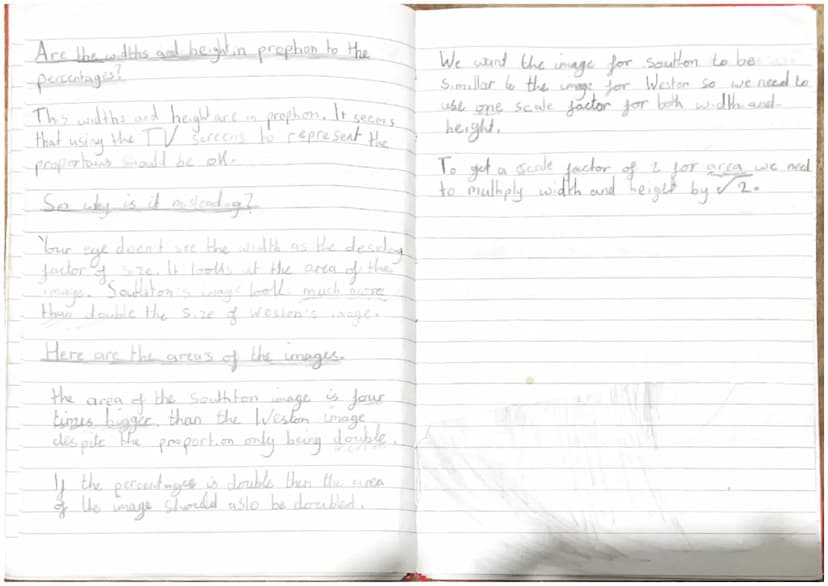 Are the widths and height in proption to the
percentages?
This widths and height are in proption. It seems
that using the TV screens to represent the
proportains should be ok.
So why is it misleading?
Your eye doen't see the width as the desiding
factor of size. It looks at the area of the
image. Southton's image looks much more
than double the size of Weston's image.
Here are the area's of the images.
the area of the Southton image is four
times bigger than the Weston image
despite the proportion only being double.
If the percentages is double then the area
of the image should aslo be doubled.
We want the image for Southon to be
Simillar to the image for Weston so we need to
use one scale factor for both width and
height.
To get a scale factor of 2 for area we need
to multiply width and height by √2.